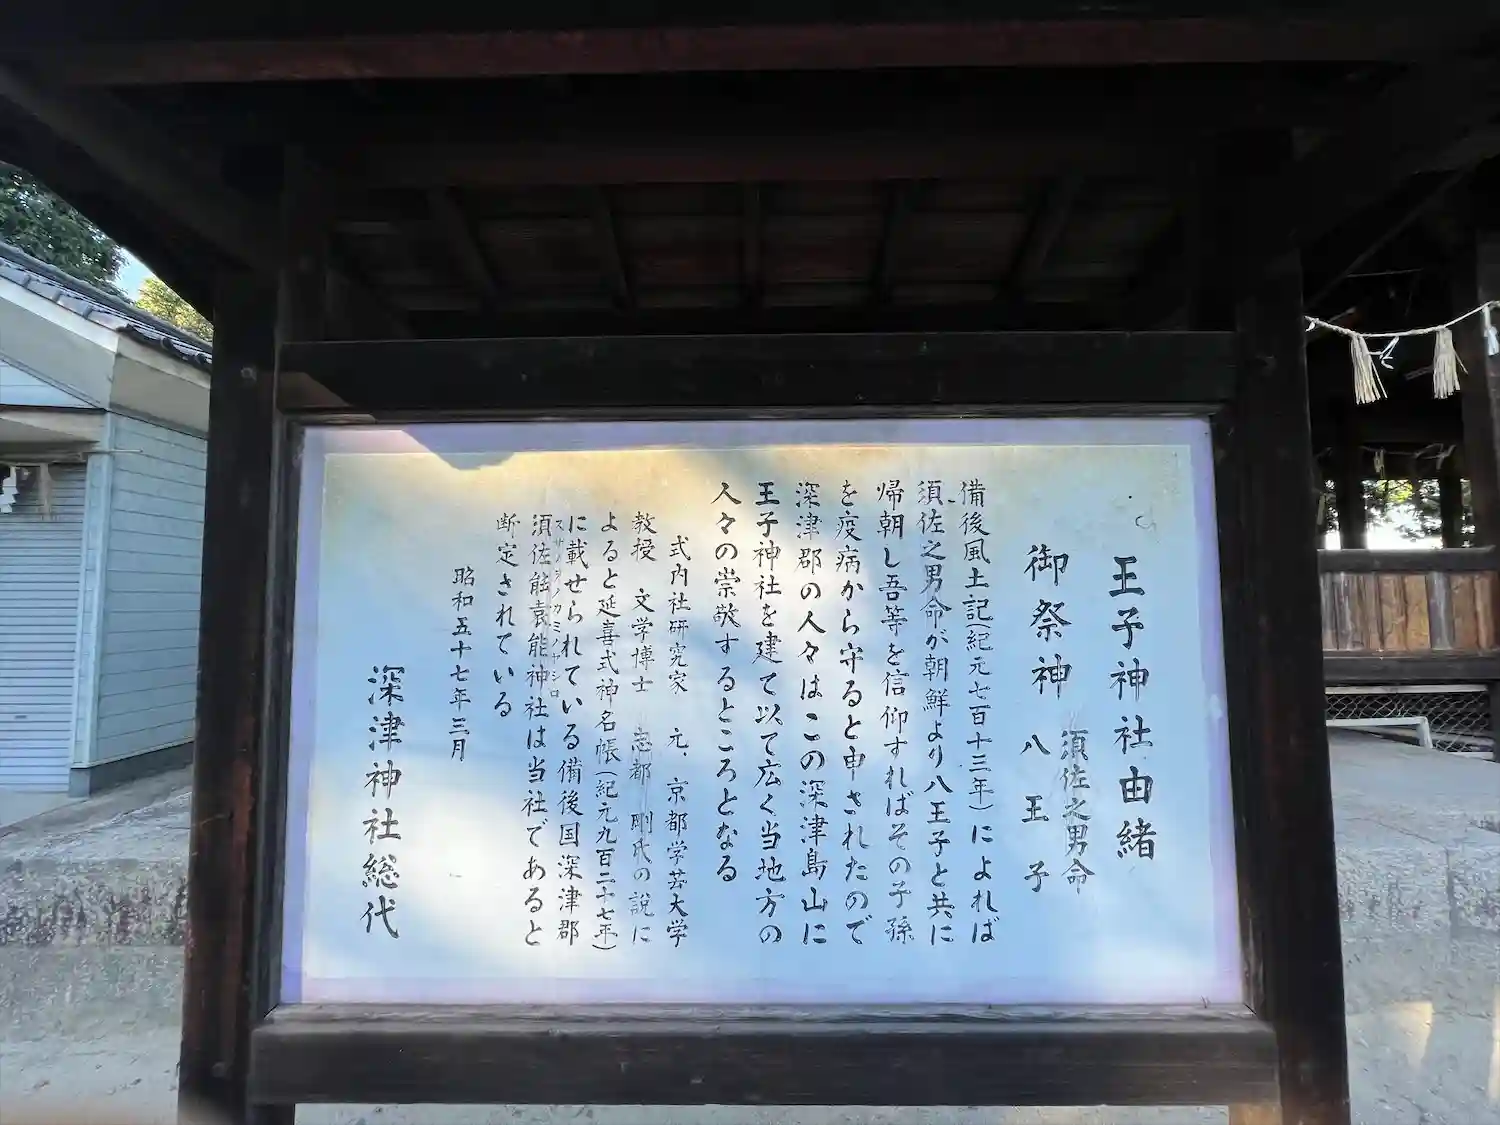 王子神社由緒
御祭神 須佐之男命
八王子
備後風土記紀元七百十三年)によれば
須佐之男命が朝鮮より八王子と共に
帰朝し吾等を信仰すればその子孫
を疫病から守ると申されたので
深津郡の人々はこの深津島山に
王子神社を建て以て広く当地方の
人々の崇敬するところとなる
式内社研究家 元、京都学芸大学
教授 文学博士 志都 剛氏の説に
よると延喜式神名帳(紀元九百二十七年)
に載せられている備後国深津郡
スサノヲノカミノヤシロ
須佐能袁能神社は当社であると
断定されている
昭和五十七年三月
深津神社総代